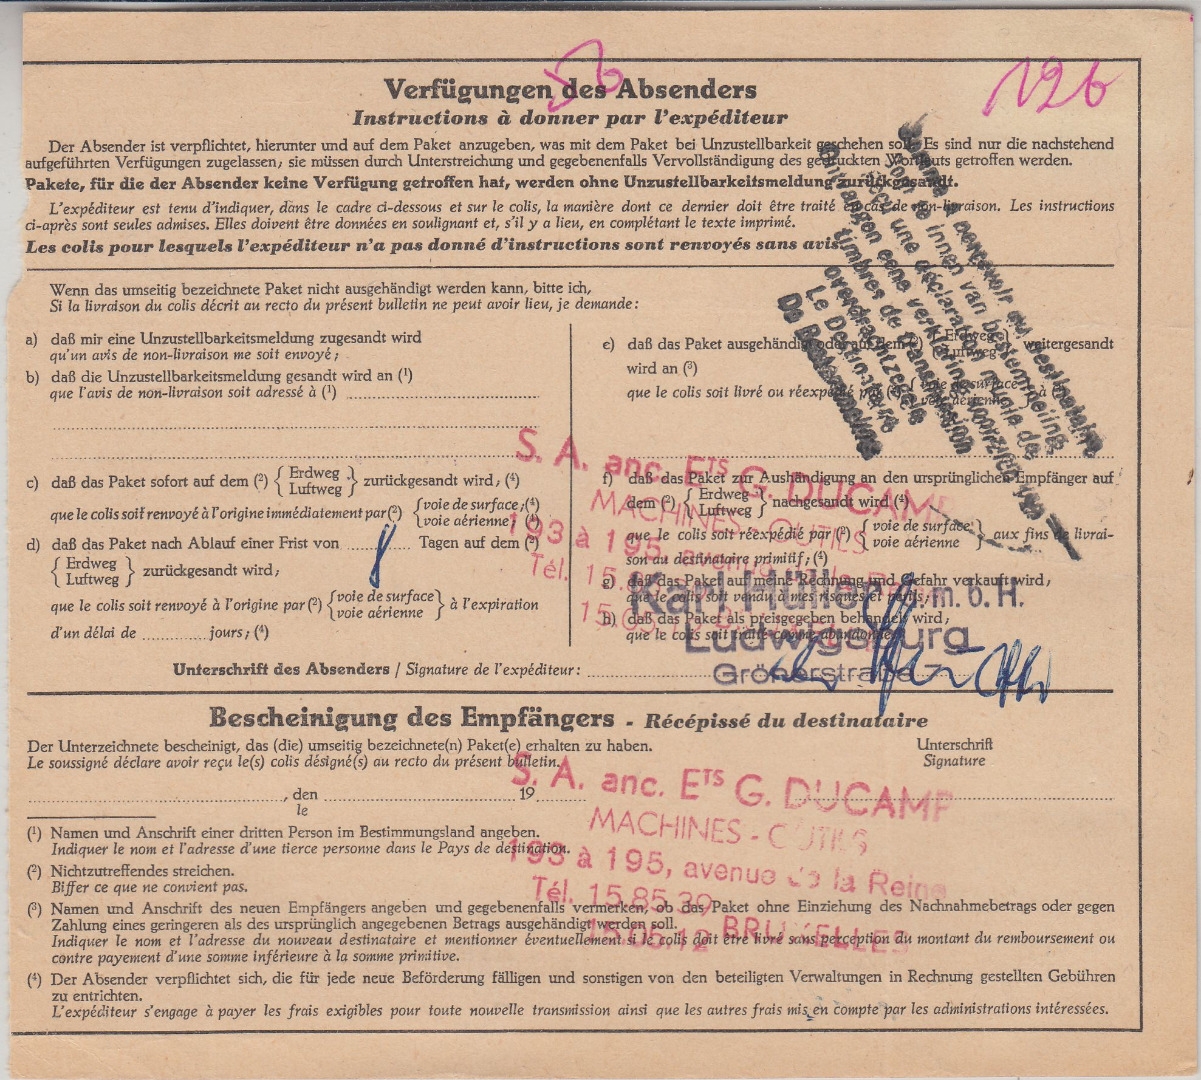 56
126
Verfügungen des Absenders
Instructions à donner par l'expéditeur
Der Absender ist verpflichtet, hierunter und auf dem Paket anzugeben, was mit dem Paket bei Unzustellbarkeit geschehen soll. Es sind nur die nachstehend
aufgeführten Verfügungen zugelassen; sie müssen durch Unterstreichung und gegebenenfalls Vervollständigung des gedruckten Wortlauts getroffen werden.
Pakete, für die der Absender keine Verfügung getroffen hat, werden ohne Unzustellbarkeitsmeldung zurückgesandt.
L'expéditeur est tenu d'indiquer, dans le cadre ci-dessous et sur le colis, la manière dont ce dernier doit être traité en cas de non-livraison. Les instructions
ci-après sont seules admises. Elles doivent être données en soulignant et, s'il y a lieu, en complétant le texte imprimé.
Les colis pour lesquels l'expéditeur n'a pas donné d'instructions sont renvoyés sans avis.
Wenn das umseitig bezeichnete Paket nicht ausgehändigt werden kann, bitte ich,
Si la livraison du colis décrit au recto du présent bulletin ne peut avoir lieu, je demande:
a) daß mir eine Unzustellbarkeitsmeldung zugesandt wird
qu'un avis de non-livraison me soit envoyé;
b) daß die Unzustellbarkeitsmeldung gesandt wird an (1)
que l'avis de non-livraison soit adressé à (1)
c) daß das Paket sofort auf dem (2) { Erdweg Luftweg } zurückgesandt wird; (4)
que le colis soit renvoyé à l'origine immédiatement par (2) { voie de surface; (4) voie aérienne; (4)
d) daß das Paket nach Ablauf einer Frist von 8 Tagen auf dem (2)
{ Erdweg Luftweg } zurückgesandt wird;
que le colis soit renvoyé à l'origine par (2) { voie de surface voie aérienne } à l'expiration
d'un délai de jours; (4)
e) daß das Paket ausgehändigt oder auf dem (2) { Erdweg Luftweg } weitergesandt
wird an (3)
que le colis soit livré ou réexpédié par (2) { voie de surface voie aérienne } à (3)
f) daß das Paket zur Aushändigung an den ursprünglichen Empfänger auf
dem (2) { Erdweg Luftweg } nachgesandt wird (4)
que le colis soit réexpédié par (2) { voie de surface voie aérienne } aux fins de livrai-
son au destinataire primitif; (4)
g) daß das Paket auf meine Rechnung und Gefahr verkauft wird;
que le colis soit vendu à mes risques et périls;
h) daß das Paket als preisgegeben behandelt wird;
que le colis soit traité comme abandonné.
timbres de transmission
Le Destinataire
S. A. anc. Ets G. DUCAMP
MACHINES - OUTILS
193 à 195, avenue de la Reine
Tél. 15.85.39
Karl Hüller G.m.b.H.
Ludwigsburg
Grönerstraße
Unterschrift des Absenders / Signature de l'expéditeur:
Bescheinigung des Empfängers - Récépissé du destinataire
Der Unterzeichnete bescheinigt, das (die) umseitig bezeichnete(n) Paket(e) erhalten zu haben.
Le soussigné déclare avoir reçu le(s) colis désigné(s) au recto du présent bulletin.
Unterschrift
Signature
, den 19
le
S. A. anc. Ets G. DUCAMP
MACHINES - OUTILS
193 à 195, avenue de la Reine
Tél. 15.85.39
15.05.12 BRUXELLES
(1) Namen und Anschrift einer dritten Person im Bestimmungsland angeben.
Indiquer le nom et l'adresse d'une tierce personne dans le Pays de destination.
(2) Nichtzutreffendes streichen.
Biffer ce que ne convient pas.
(3) Namen und Anschrift des neuen Empfängers angeben und gegebenenfalls vermerken, ob das Paket ohne Einziehung des Nachnahmebetrags oder gegen
Zahlung eines geringeren als des ursprünglich angegebenen Betrags ausgehändigt werden soll.
Indiquer le nom et l'adresse du nouveau destinataire et mentionner éventuellement si le colis doit être livré sans perception du montant du remboursement ou
contre payement d'une somme inférieure à la somme primitive.
(4) Der Absender verpflichtet sich, die für jede neue Beförderung fälligen und sonstigen von den beteiligten Verwaltungen in Rechnung gestellten Gebühren
zu entrichten.
L'expéditeur s'engage à payer les frais exigibles pour toute nouvelle transmission ainsi que les autres frais mis en compte par les administrations intéressées.